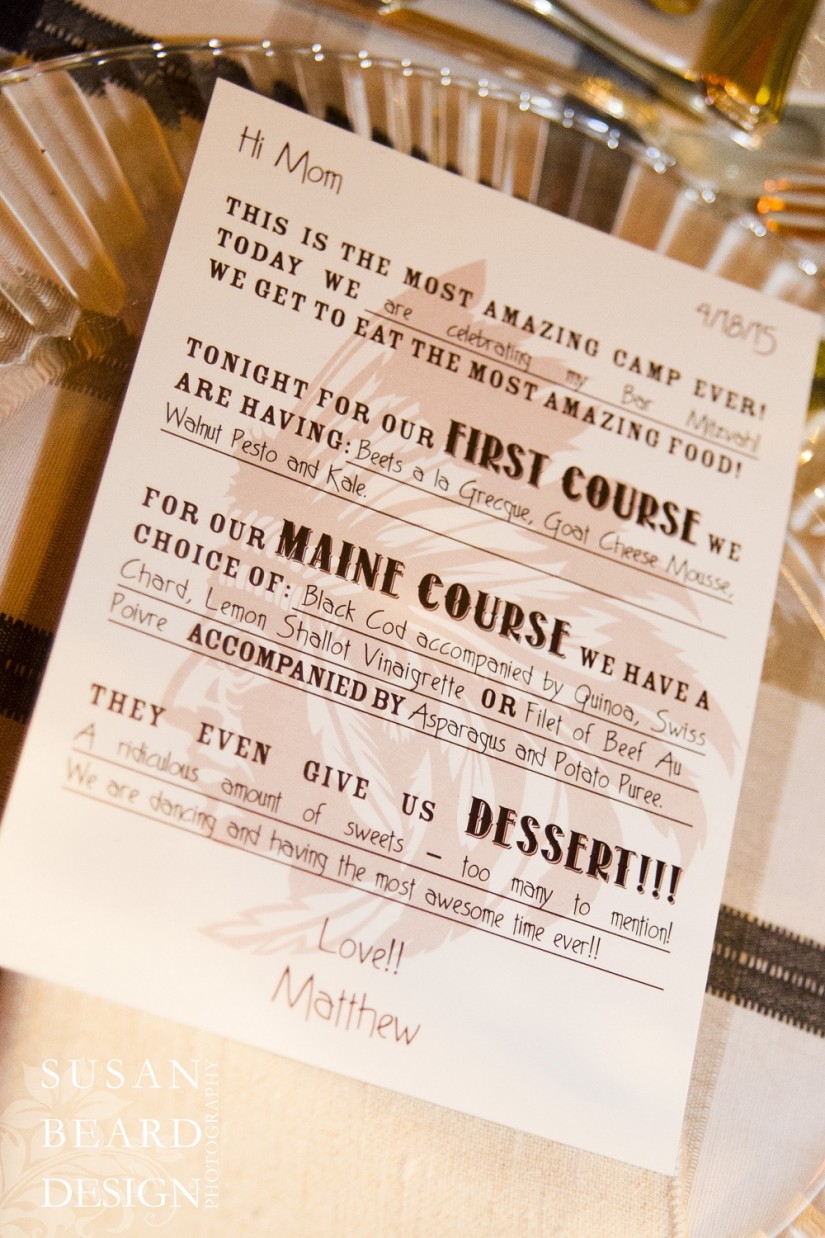 Hi Mom
4/18/15
THIS IS THE MOST AMAZING CAMP EVER!
TODAY WE are celebrating my Bar Mitzvah!
WE GET TO EAT THE MOST AMAZING FOOD!
TONIGHT FOR OUR FIRST COURSE WE
ARE HAVING: Beets a la Grecque, Goat Cheese Mousse,
Walnut Pesto and Kale.
FOR OUR MAINE COURSE WE HAVE A
CHOICE OF: Black Cod accompanied by Quinoa, Swiss
Chard, Lemon Shallot Vinaigrette OR Filet of Beef Au
Poivre ACCOMPANIED BY Asparagus and Potato Puree.
THEY EVEN GIVE US DESSERT!!!
A ridiculous amount of sweets – too many to mention!
We are dancing and having the most awesome time ever!!
Love!!
Matthew
SUSAN
BEARD
DESIGN
PHOTOGRAPHY